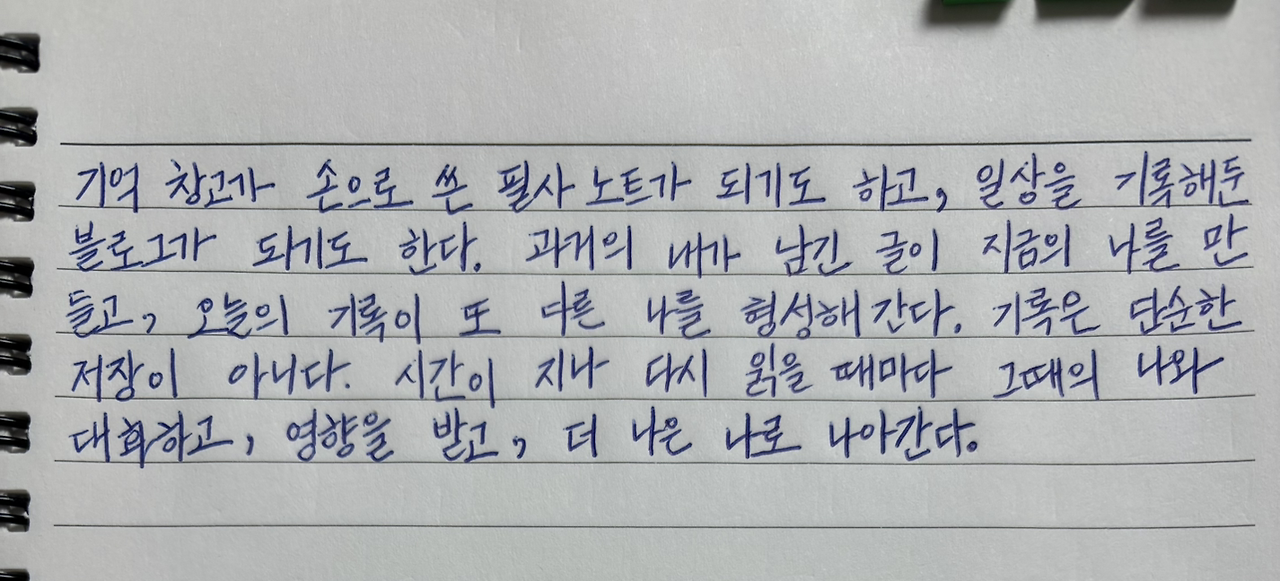 기억 창고가 손으로 쓴 필사 노트가 되기도 하고, 일상을 기록해둔
블로그가 되기도 한다. 과거의 내가 남긴 글이 지금의 나를 만
들고, 오늘의 기록이 또 다른 나를 형성해 간다. 기록은 단순한
저장이 아니다. 시간이 지나 다시 읽을 때마다 그때의 나와
대화하고, 영향을 받고, 더 나은 나로 나아간다.